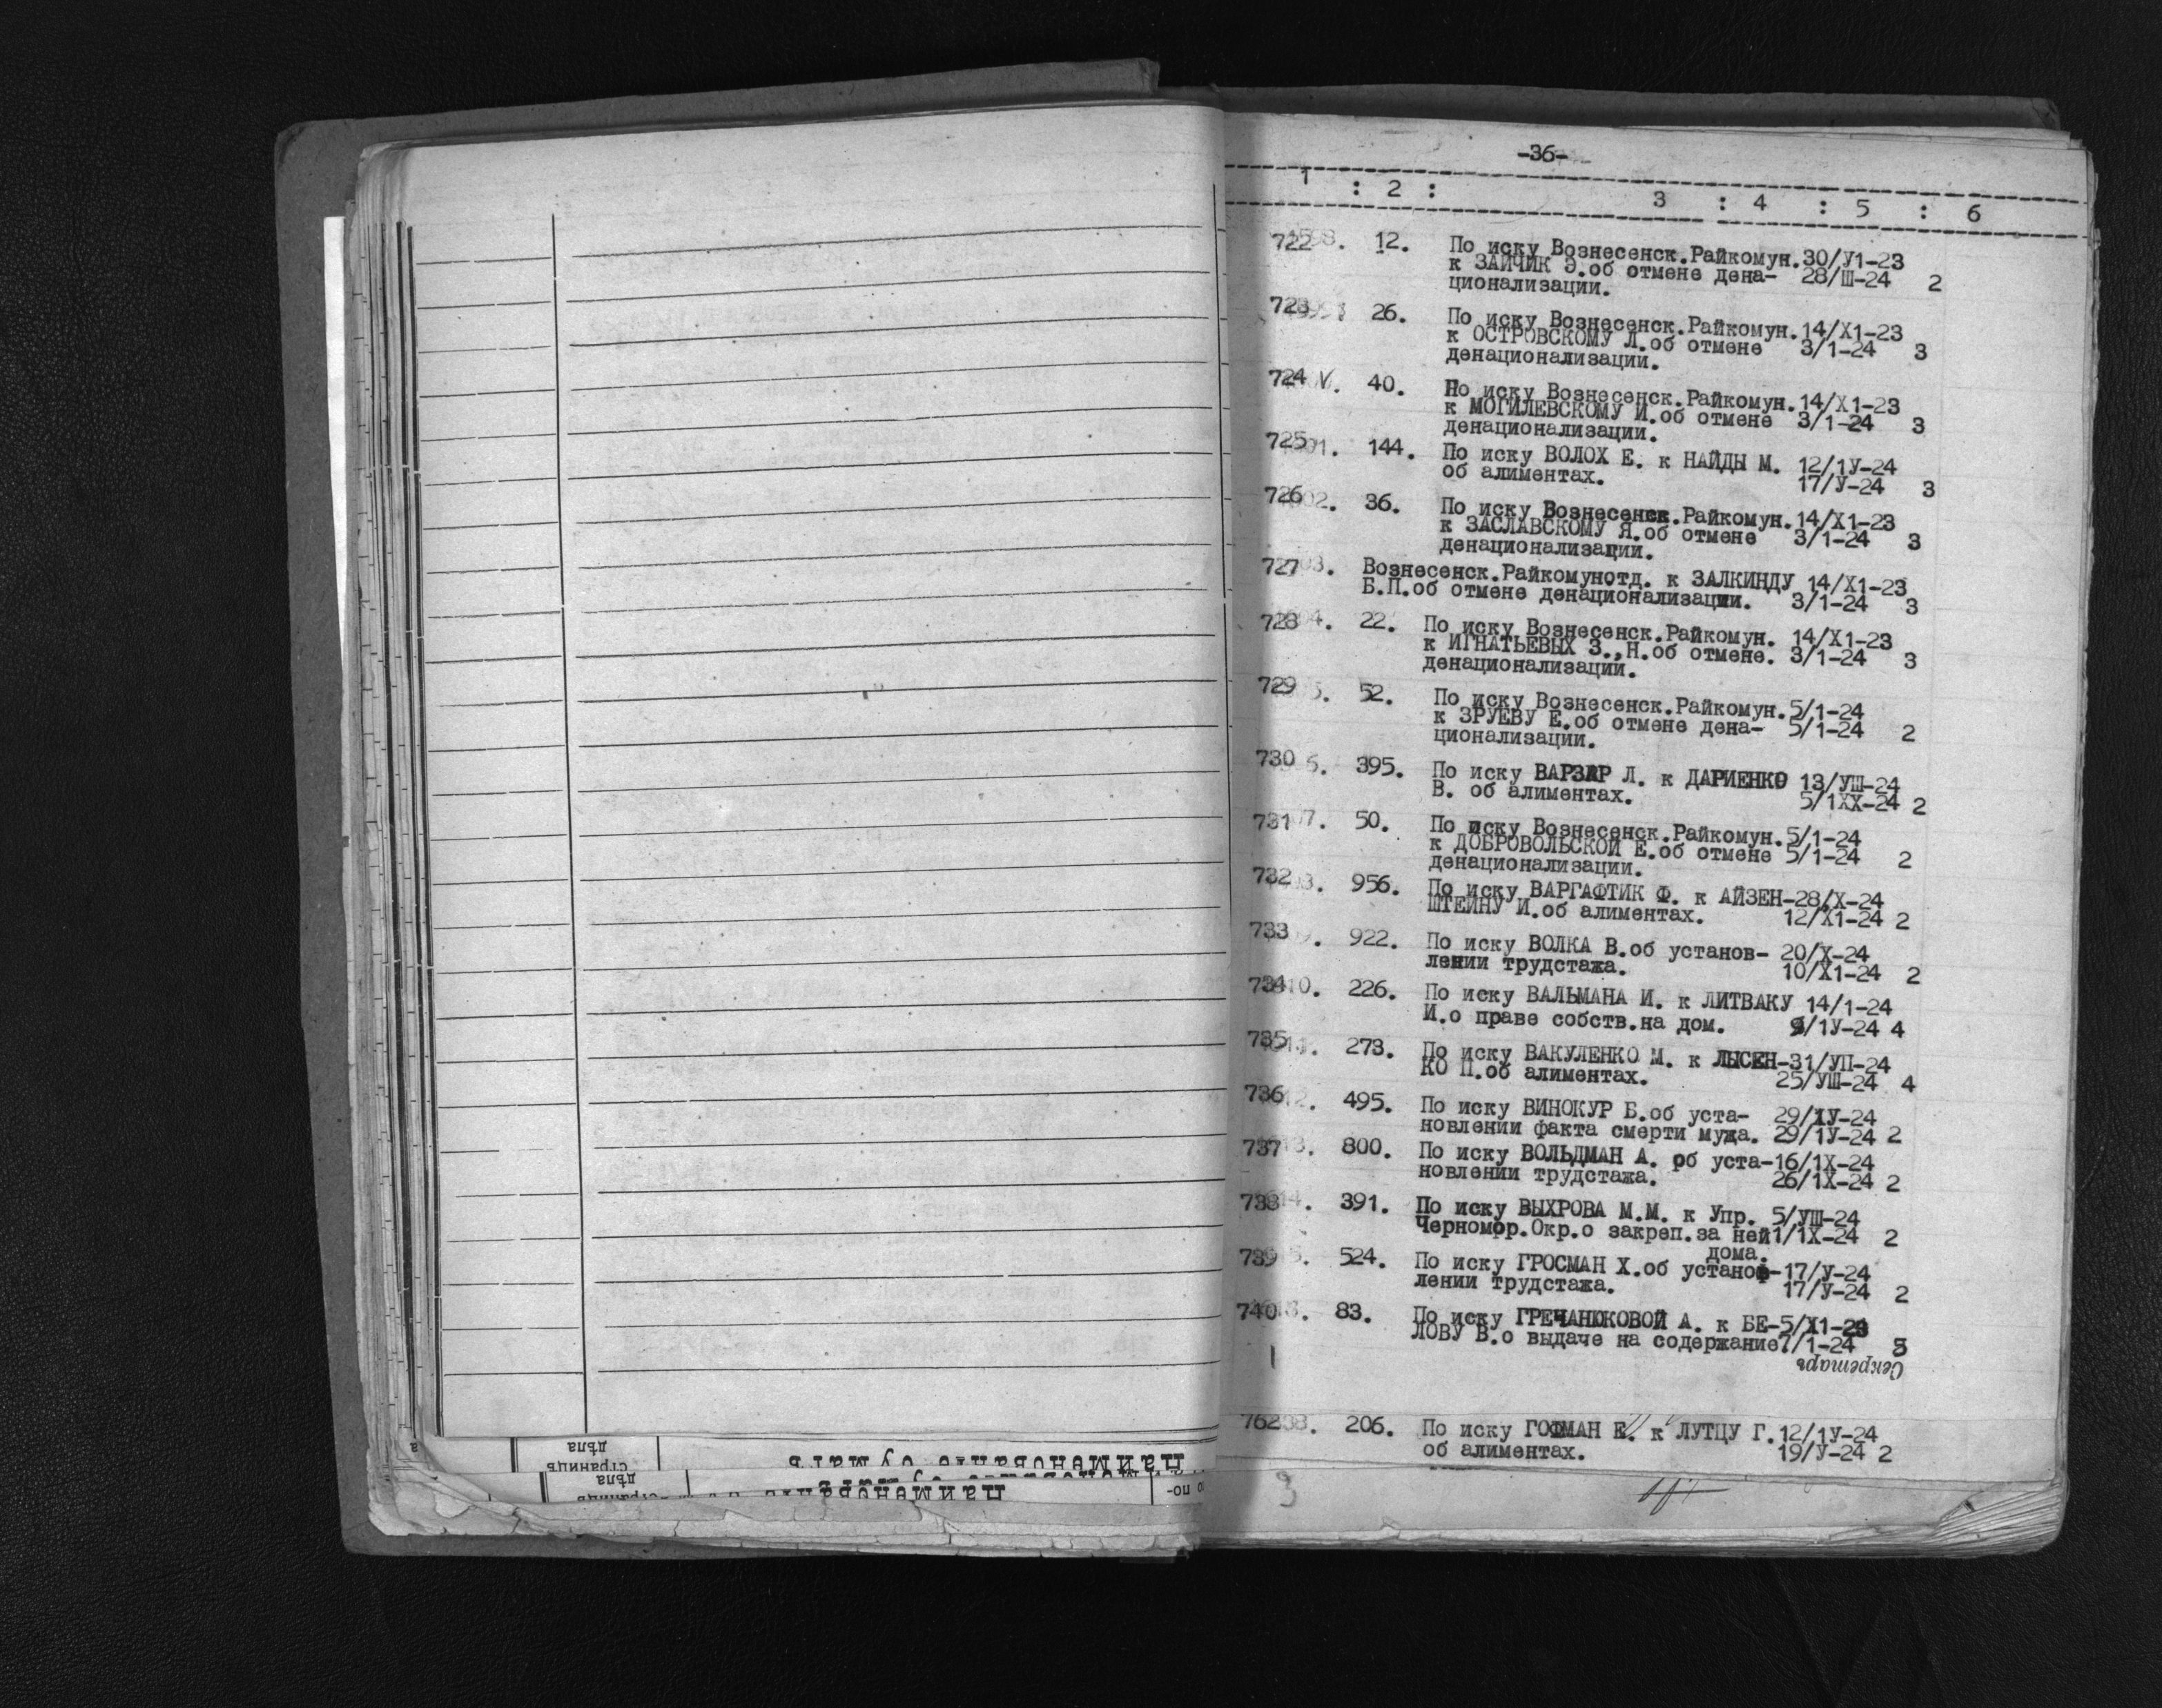 -36-
1 : 2 : 3 : 4 : 5 : 6
722 . 12. По иску Вознесенск.Райкомун.30/У1-23
к ЗАЙЧИК Э.об отмене дена- 28/Ш-24 2
ционализации.
723 26. По иску Вознесенск.Райкомун.14/Х1-23
к ОСТРОВСКОМУ Л.об отмене 3/1-24 3
денационализации.
724 V. 40. По иску Вознесенск.Райкомун.14/Х1-23
к МОГИЛЕВСКОМУ И.об отмене 3/1-24 3
денационализации.
725 . 144. По иску ВОЛОХ Е. к НАЙДЫ М. 12/1У-24
об алиментах. 17/У-24 3
726 . 36. По иску Вознесенск.Райкомун.14/Х1-23
к ЗАСЛАВСКОМУ Я.об отмене 3/1-24 3
денационализации.
727 . Вознесенск.Райкомунотд. к ЗАЛКИНДУ 14/Х1-23
Б.П.об отмене денационализации. 3/1-24 3
728 . 22. По иску Вознесенск.Райкомун. 14/Х1-23
к ИГНАТЬЕВЫХ З.,Н.об отмене. 3/1-24 3
денационализации.
729 . 52. По иску Вознесенск.Райкомун.5/1-24
к ЗРУЕВУ Е.об отмене дена- 5/1-24 2
ционализации.
730 . 395. По иску ВАРЗАР Л. к ДАРИЕНКО 13/УШ-24
В. об алиментах. 5/1ХХ-24 2
731 . 50. По иску Вознесенск.Райкомун.5/1-24
к ДОБРОВОЛЬСКОЙ Е.об отмене 5/1-24 2
денационализации.
732 . 956. По иску ВАРГАФТИК Ф. к АЙЗЕН-28/Х-24
ШТЕЙНУ И.об алиментах. 12/Х1-24 2
733 . 922. По иску ВОЛКА В.об установ- 20/Х-24
лении трудстажа. 10/Х1-24 2
734 . 226. По иску ВАЛЬМАНА И. к ЛИТВАКУ 14/1-24
И.о праве собств.на дом. 9/1У-24 4
735 . 273. По иску ВАКУЛЕНКО М. к ЛЫСЕН-31/УП-24
КО П.об алиментах. 25/УШ-24 4
736 . 495. По иску ВИНОКУР Б.об уста- 29/1У-24
новлении факта смерти мужа. 29/1У-24 2
737 . 800. По иску ВОЛЬДМАН А. об уста-16/1Х-24
новлении трудстажа. 26/1Х-24 2
738 . 391. По иску ВЫХРОВА М.М. к Упр. 5/УШ-24
Черномор.Окр.о закреп.за ней1/1Х-24 2
дома.
739 . 524. По иску ГРОСМАН Х.об установ-17/У-24
лении трудстажа. 17/У-24 2
740 . 83. По иску ГРЕЧАНЮКОВОЙ А. к БЕ-5/Х1-23
ЛОВУ В.о выдаче на содержание7/1-24 3
Секретарь
762 . 206. По иску ГОФМАН Е. к ЛУТЦУ Г.12/1У-24
об алиментах. 19/У-24 2
дѣла
страницъ
наименованіе бумагъ
дѣла
страницъ
наименованіе бумагъ
по-